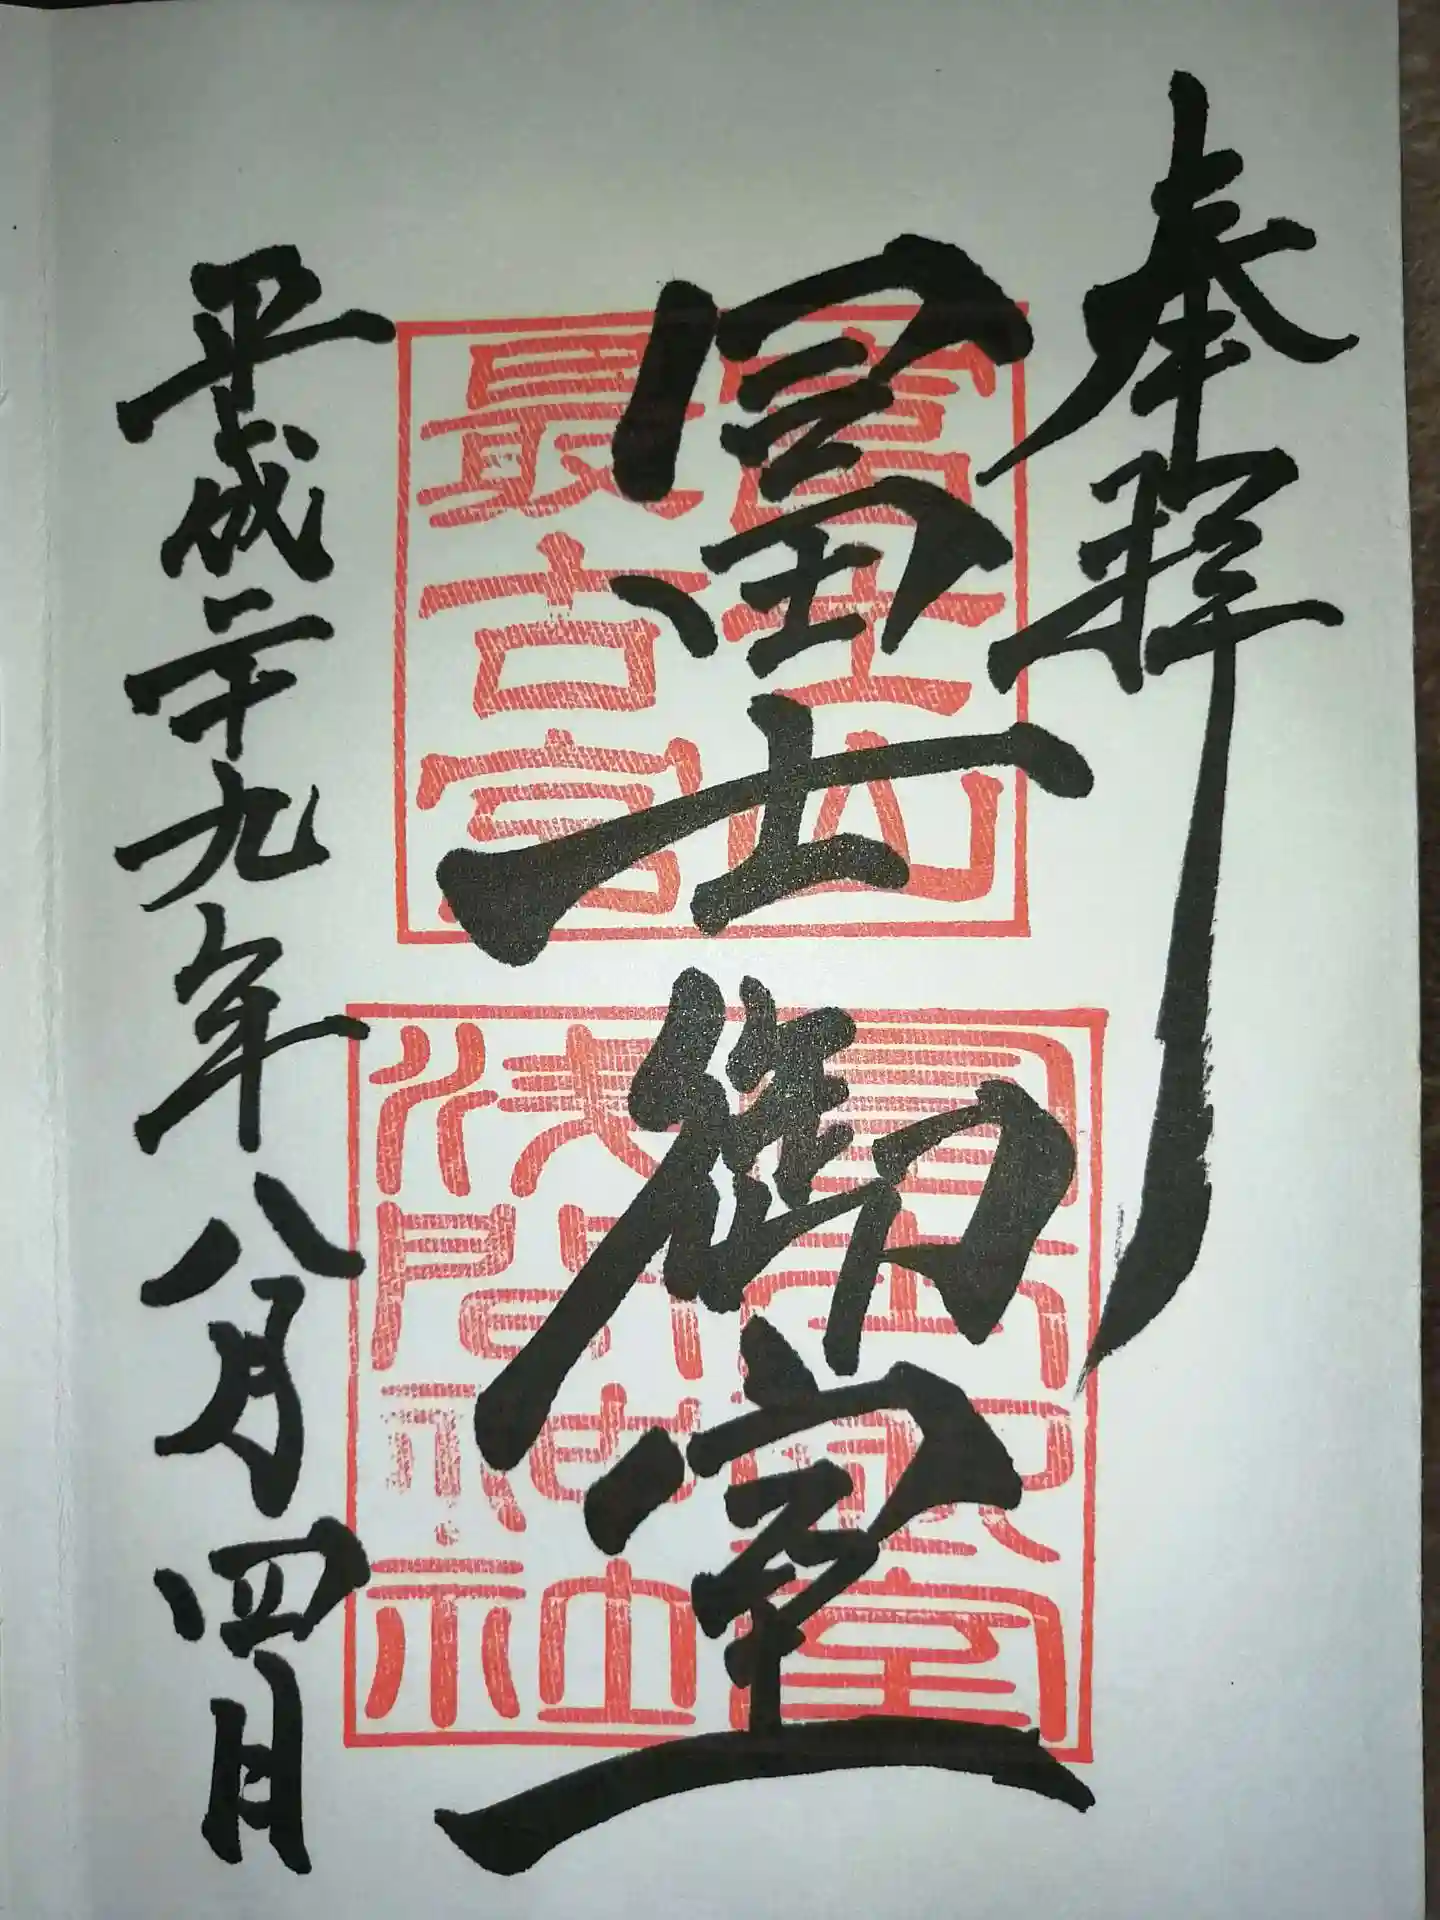 奉拝
冨士御室
富士山
最古宮
冨士御室
淺間神社
平成二十九年八月四日